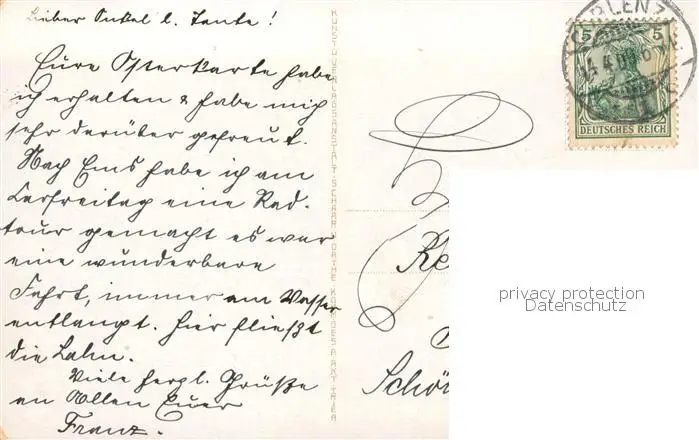 Lieber Onkel u. Tante!
Eure Osterkarte habe
ich erhalten & habe mich
sehr darüber gefreut.
Nach Ems habe ich am
Karfreitag eine Rad-
tour gemacht es war
eine wunderbare
Fahrt, immer am Wasser
entlangt. Hier fließt
die Lahn.
Viele herzl. Grüße
an Allen Euer
Franz.
KUNSTVERLAGSANSTALT SCHAAR
BLENZ
5 5
DEUTSCHES REICH
Schön
privacy protection
Datenschutz